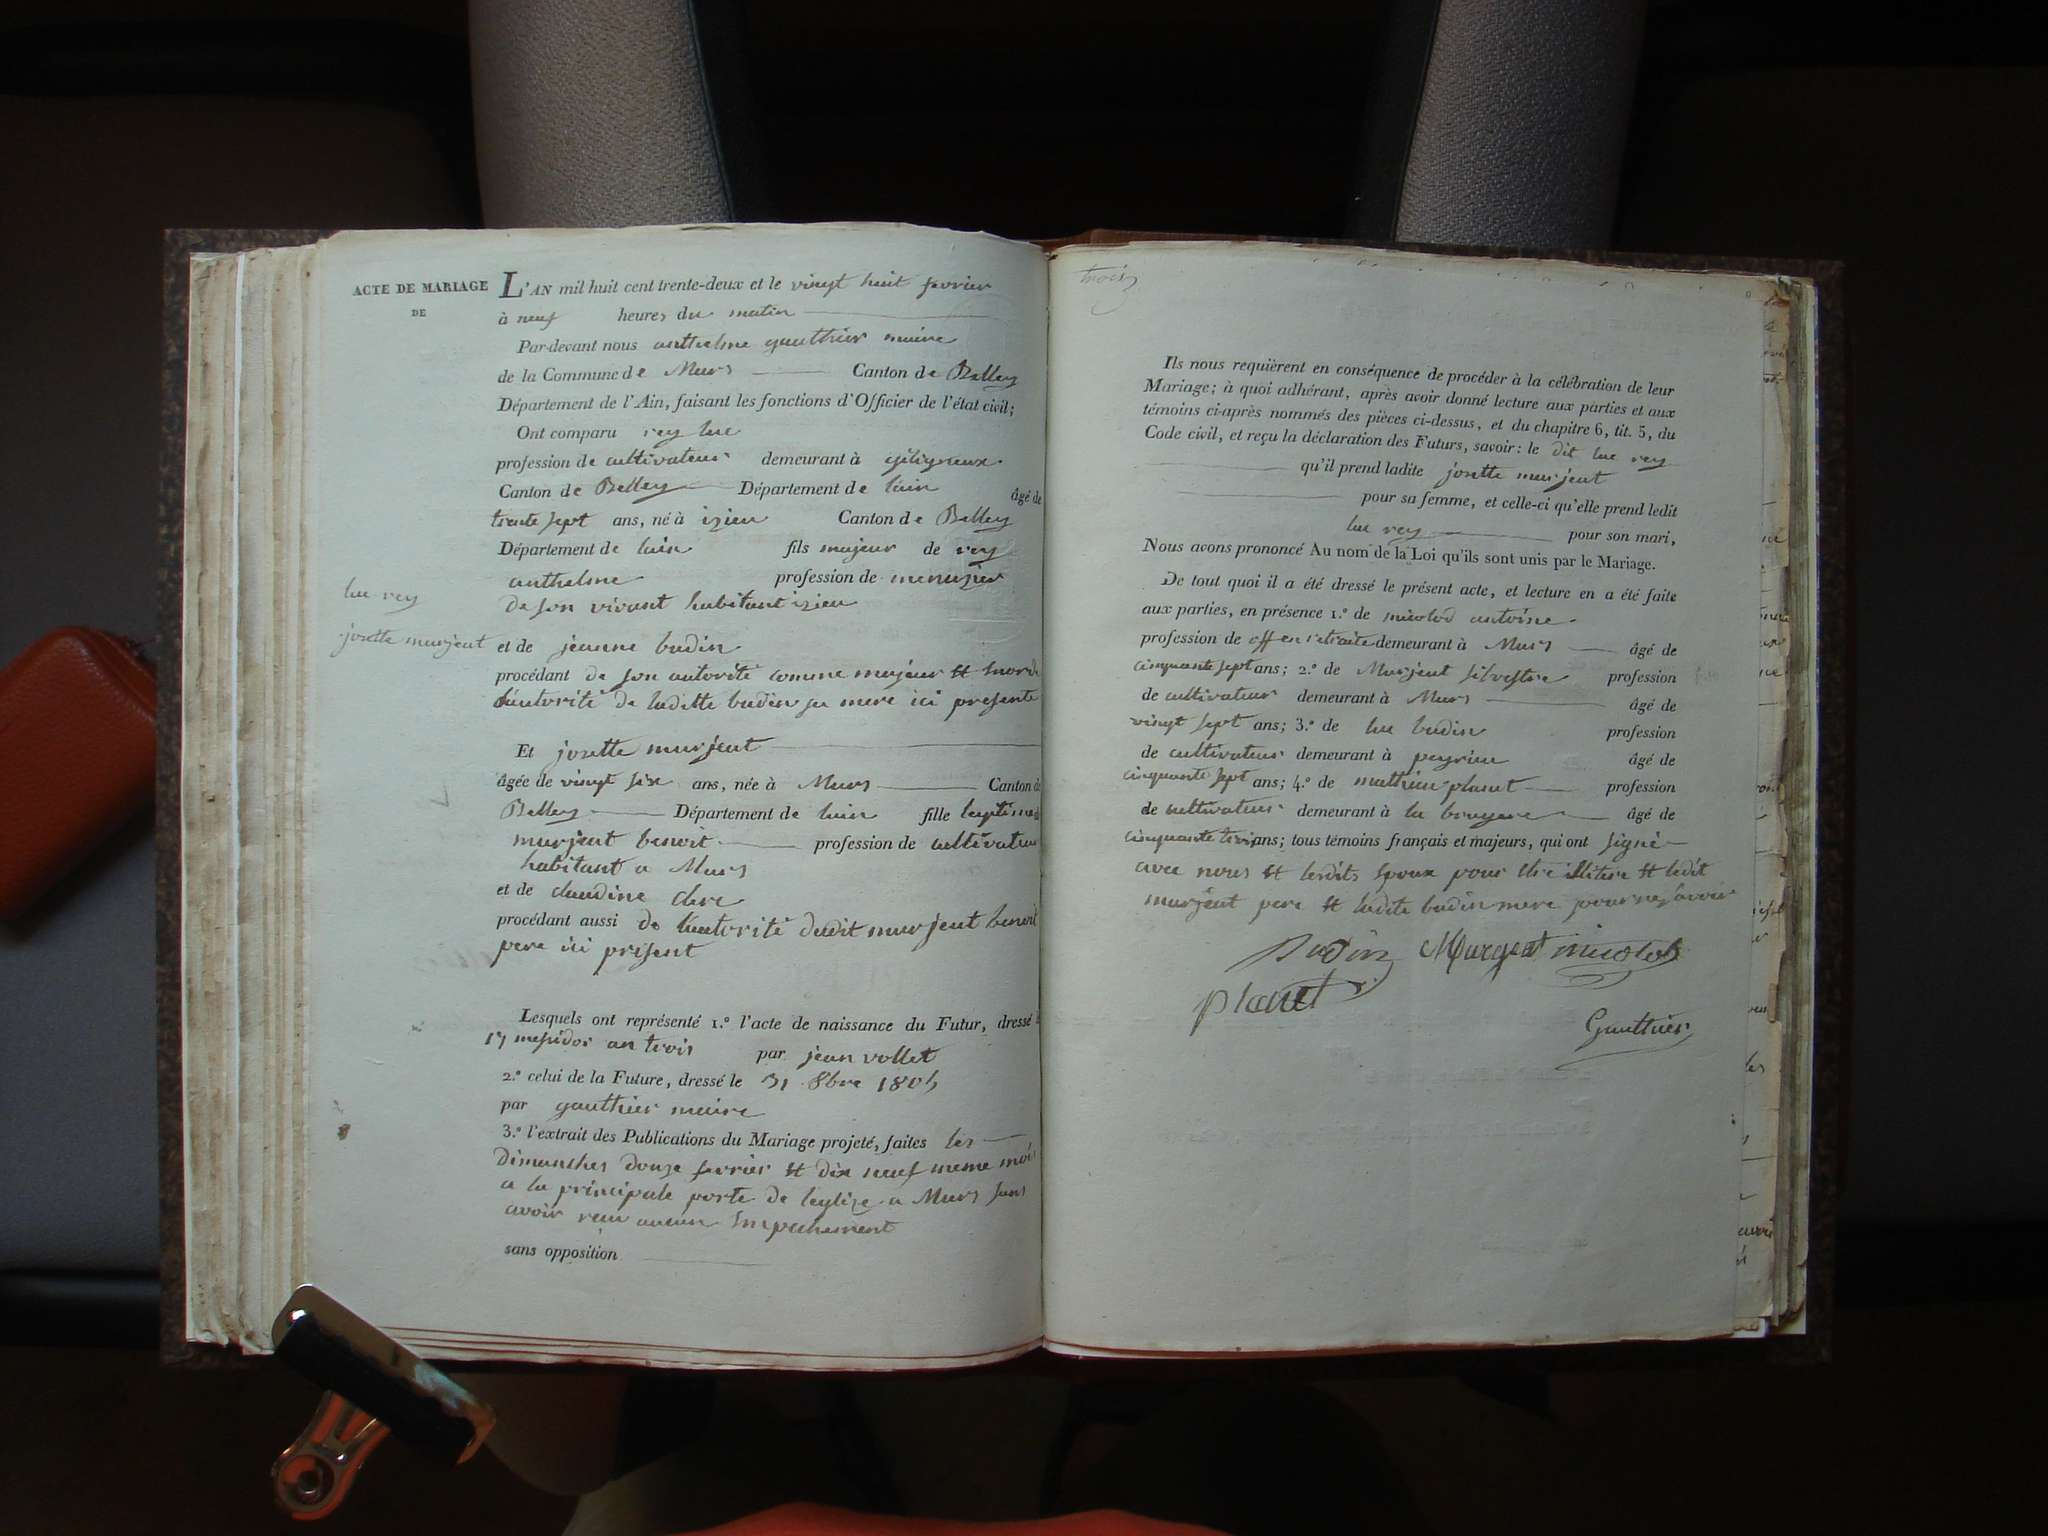 ACTE DE MARIAGE
DE
luc rey
josette murjeat
L'AN mil huit cent trente-deux et le vingt huit fevrier
à neuf heures du matin
Par-devant nous anthelme gauthier maire
de la Commune de Murs Canton de Belley
Département de l'Ain, faisant les fonctions d'Officier de l'état civil;
Ont comparu rey luc
profession de cultivateur demeurant à
Canton de Belley Département de lain âgé de
trente sept ans, né à izieu Canton de Belley
Département de lain fils majeur de rey
anthelme profession de menuzier
de son vivant habitant izieu
et de jeanne budin
procédant de son autorité comme majeur et
lautorité de ladette budin sa mere ici presente
Et josette murjeat
âgée de vingt six ans, née à Murs Canton de
Belley Département de lain fille legitime
murjeat benoit profession de cultivateur
habitant a Murs
et de claudine clerc
procédant aussi de lautorité dudit murjeat benoit
pere ici présent
Lesquels ont représenté 1.º l'acte de naissance du Futur, dressé
17 messidor an trois par jean vollet
2.º celui de la Future, dressé le 31 8bre 1805
par gauthier maire
3.º l'extrait des Publications du Mariage projeté, faites les
dimanches douze fevrier et dix neuf meme mois
a la principale porte de leglize a Murs sans
avoir reçu aucun Empechement
sans opposition
trois
Ils nous requièrent en conséquence de procéder à la célébration de leur
Mariage; à quoi adhérant, après avoir donné lecture aux parties et aux
témoins ci-après nommés des pièces ci-dessus, et du chapitre 6, tit. 5, du
Code civil, et reçu la déclaration des Futurs, savoir: le dit luc rey
qu'il prend ladite josette murjeat
pour sa femme, et celle-ci qu'elle prend ledit
luc rey pour son mari,
Nous avons prononcé Au nom de la Loi qu'ils sont unis par le Mariage.
De tout quoi il a été dressé le présent acte, et lecture en a été faite
aux parties, en présence 1.º de micolod antoine
profession de off en retraite demeurant à Murs âgé de
cinquante sept ans; 2.º de Murjeat silvestre profession
de cultivateur demeurant à Murs âgé de
vingt sept ans; 3.º de luc budin profession
de cultivateur demeurant à peyrieu âgé de
cinquante sept ans; 4.º de mathieu planet profession
de cultivateur demeurant à la bruyere âgé de
cinquante trois ans; tous témoins français et majeurs, qui ont signé
avec nous et lesdits Epoux pour etre illitere et ledit
murjeat pere et ladite budin mere pour ne savoir
Budin Murgeat micolod
planet
Gauthier